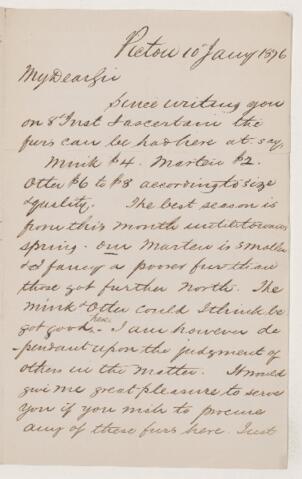 Pictou 10 Jany 1876
My Dear Sir
Since writing you
on 8 Inst I ascertain the
furs can be had here at say
Mink $4. Marten $2.
Otter $6 to $8 according to size
& quality. The best season is
from this month until towards
spring. Our Marten is smaller
& I fancy a poorer fur than
those got further North. The
Mink & Otter could I think be
got good here. I am however de
pendant upon the judgment of
others in the matter. It would
give me great pleasure to serve
you if you wish to procure
any of these furs here. Just